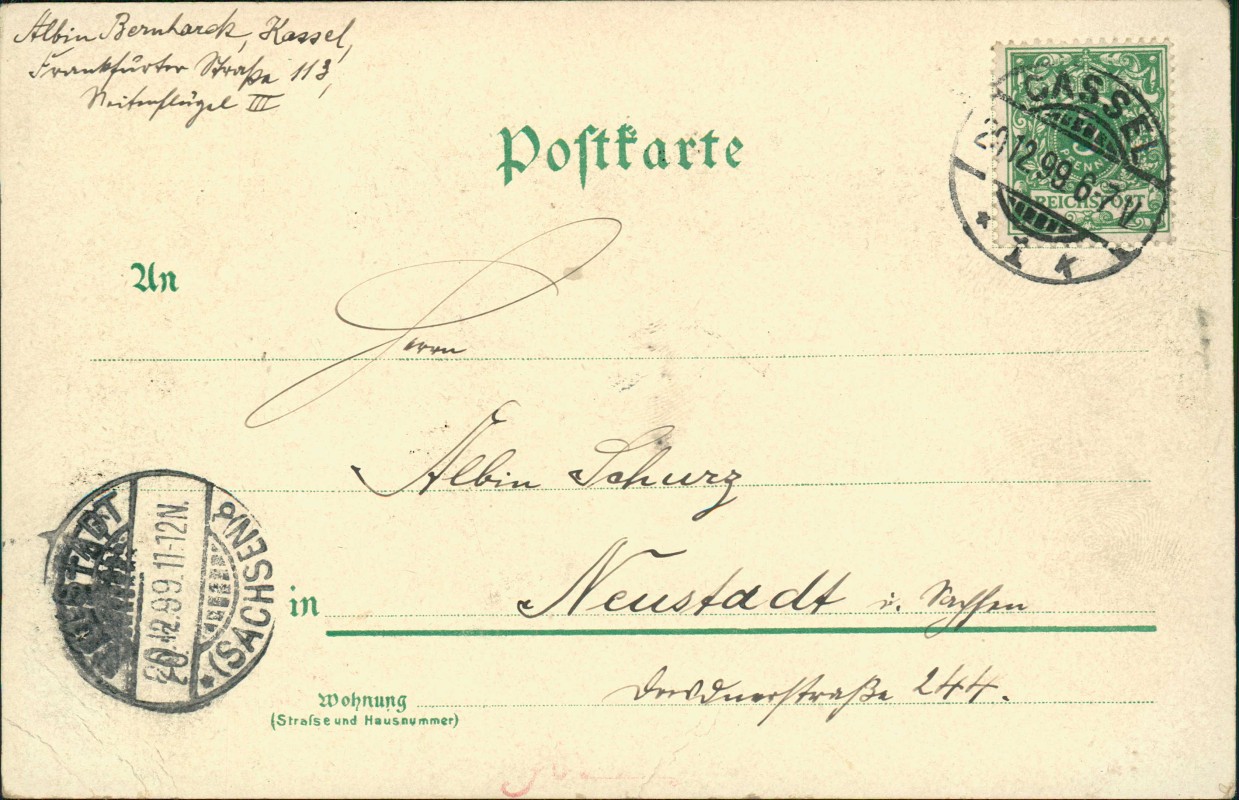 Albin Bernhardt, Kassel,
Frankfurter Straße 113,
Seitenflügel III
Postkarte
CASSEL
20.12.99 6-7 N.
* 1 K
PFENNIG
REICHSPOST
An
Herrn
Albin Schurz
in Neustadt i. Sachsen
NEUSTADT
20.12.99.11-12N.
*(SACHSEN)
Wohnung
(Strasse und Hausnummer)
Dresdnerstraße 244.